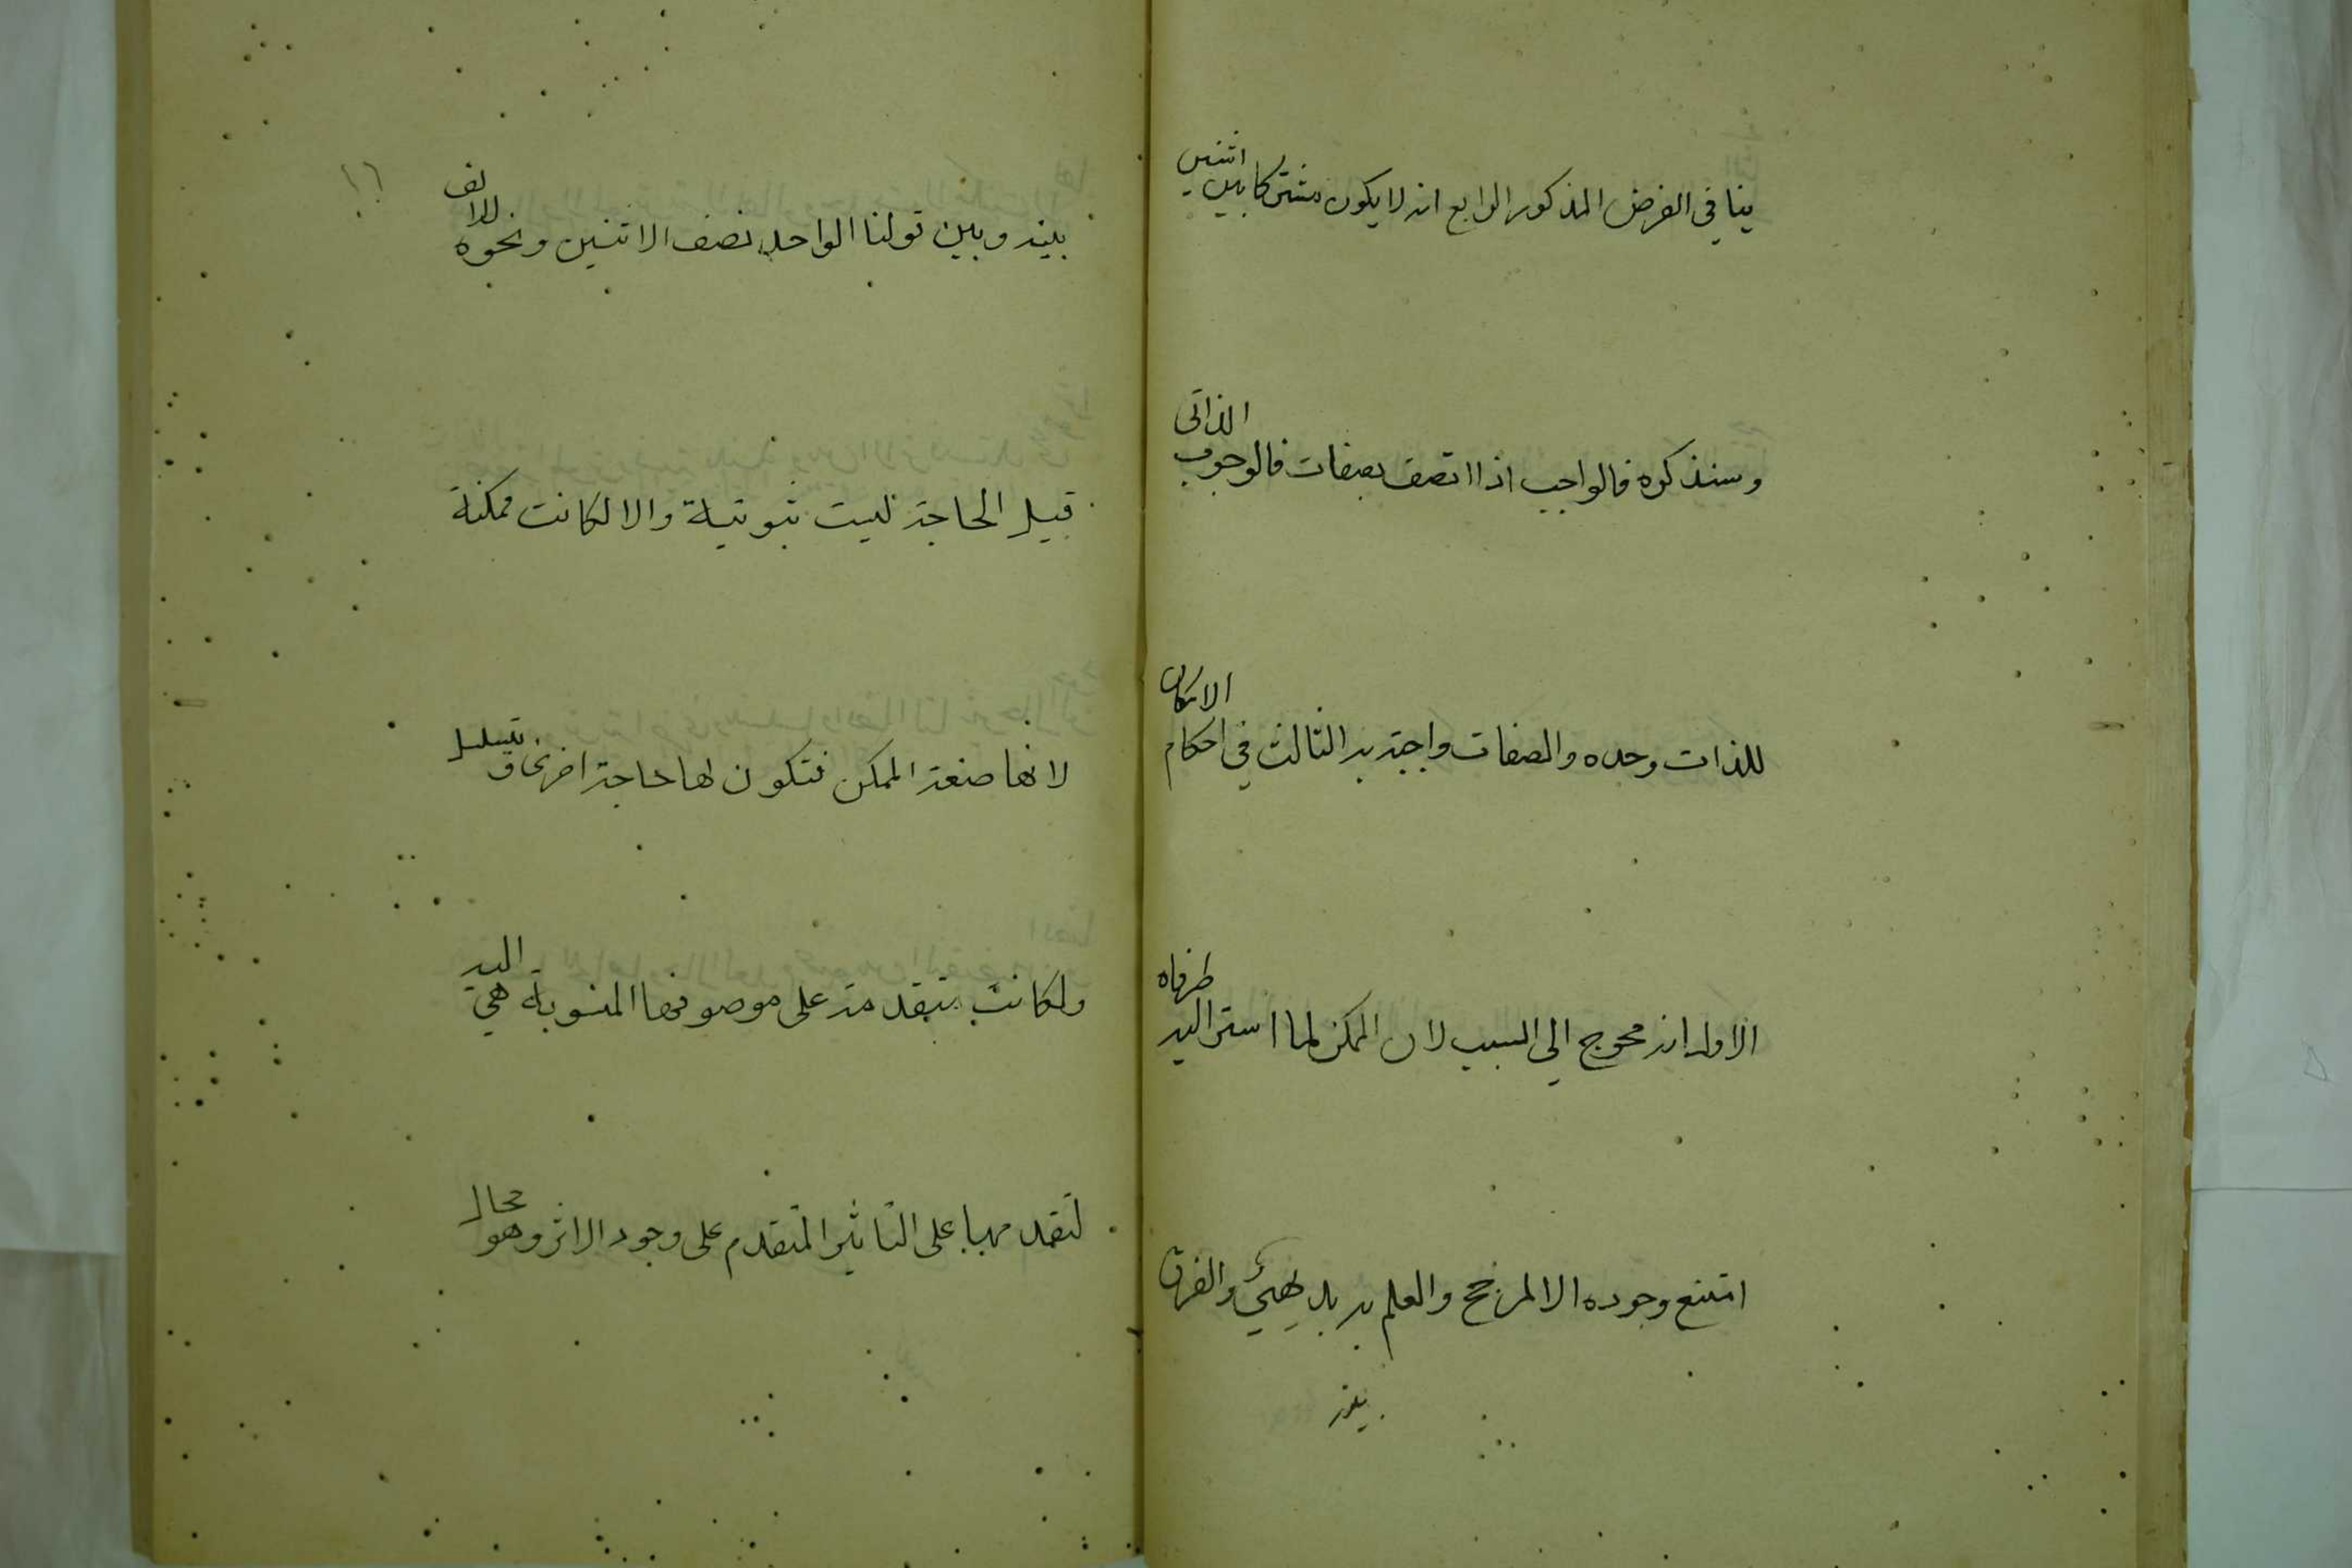 ينافي الفرض المذكور الرابع انه لا يكون مشتركا بين اثنين
وسنذكره فالواجب اذا اتصف بصفات فالوجوب الذاتى
للذات وحده والصفات واجبة به الثالث في احكام الامكان
الاول انه محوج الى السبب لان الممكن لما استوى اليه طرفاه
امتنع وجوده الا لمرجح والعلم به بديهيٌ والفرق
بينه
١٦
بينه وبين قولنا الواحد نصف الاثنين ونحوه للالف
قيل الحاجة ليست ثبوتية والا لكانت ممكنة
لانها صفة الممكن فتكون لها حاجة اخرى و تسلسل
ولكانت متقدمة على موصوفها المنسوبة هي اليه
لتقدمها على التاثير المتقدم على وجود الاثر وهو محال